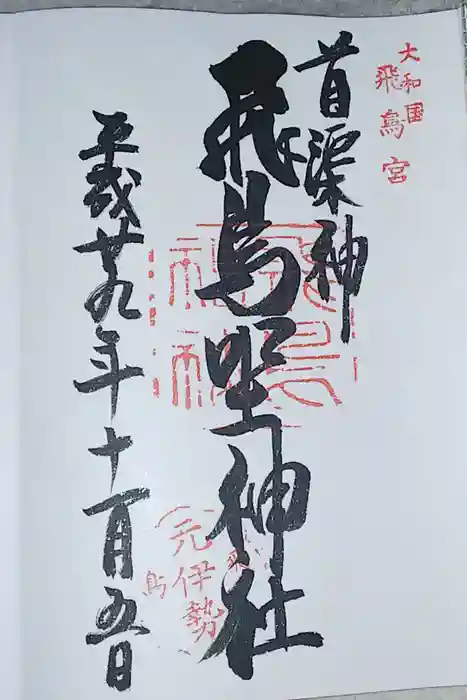 大和国
飛鳥宮
首渠神
飛鳥坐神社
元伊勢
飛鳥
平成廿九年十一月五日